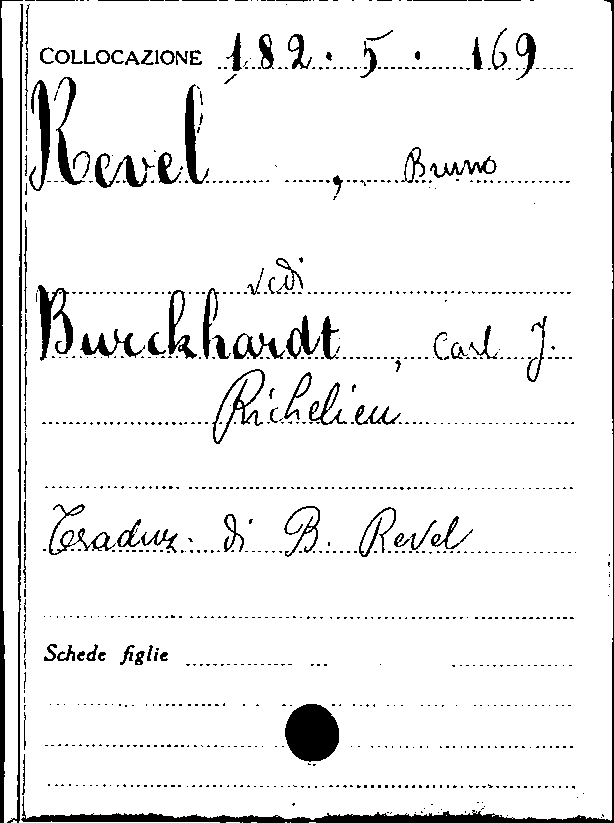 COLLOCAZIONE 182.5.169
Revel, Bruno
vedi
Burckhardt, Carl J.
Richelieu
Traduz. di B. Revel
Schede figlie